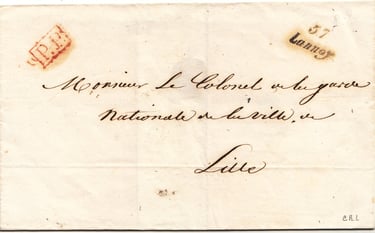 P.P.
57
Lannoy
Monsieur Le Colonel de la garde
Nationale de la ville de
Lille
C.R.L